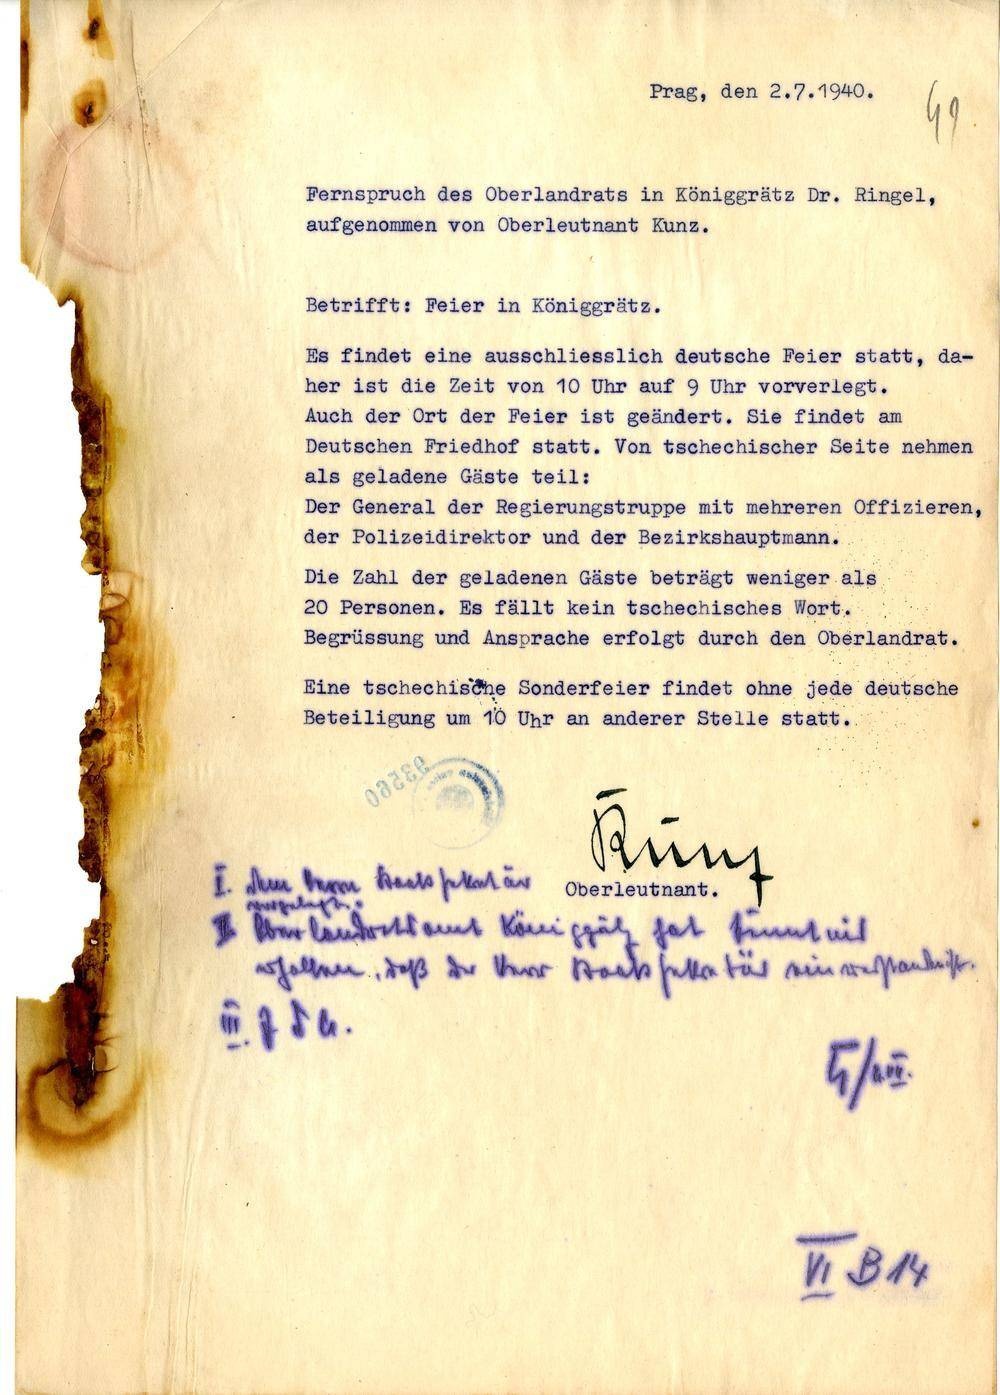 Prag, den 2.7.1940.
49
Fernspruch des Oberlandrats in Königgrätz Dr. Ringel,
aufgenommen von Oberleutnant Kunz.
Betrifft: Feier in Königgrätz.
Es findet eine ausschliesslich deutsche Feier statt, da-
her ist die Zeit von 10 Uhr auf 9 Uhr vorverlegt.
Auch der Ort der Feier ist geändert. Sie findet am
Deutschen Friedhof statt. Von tschechischer Seite nehmen
als geladene Gäste teil:
Der General der Regierungstruppe mit mehreren Offizieren,
der Polizeidirektor und der Bezirkshauptmann.
Die Zahl der geladenen Gäste beträgt weniger als
20 Personen. Es fällt kein tschechisches Wort.
Begrüssung und Ansprache erfolgt durch den Oberlandrat.
Eine tschechische Sonderfeier findet ohne jede deutsche
Beteiligung um 10 Uhr an anderer Stelle statt.
93560
Kunz
Oberleutnant.
I. Dem Herrn Staatssekretär
vorgelegt.
II Oberlandratsamt Königgrätz hat Kenntnis
erhalten, daß der Herr Staatssekretär einverstanden ist.
III. z d A.
VI B 14